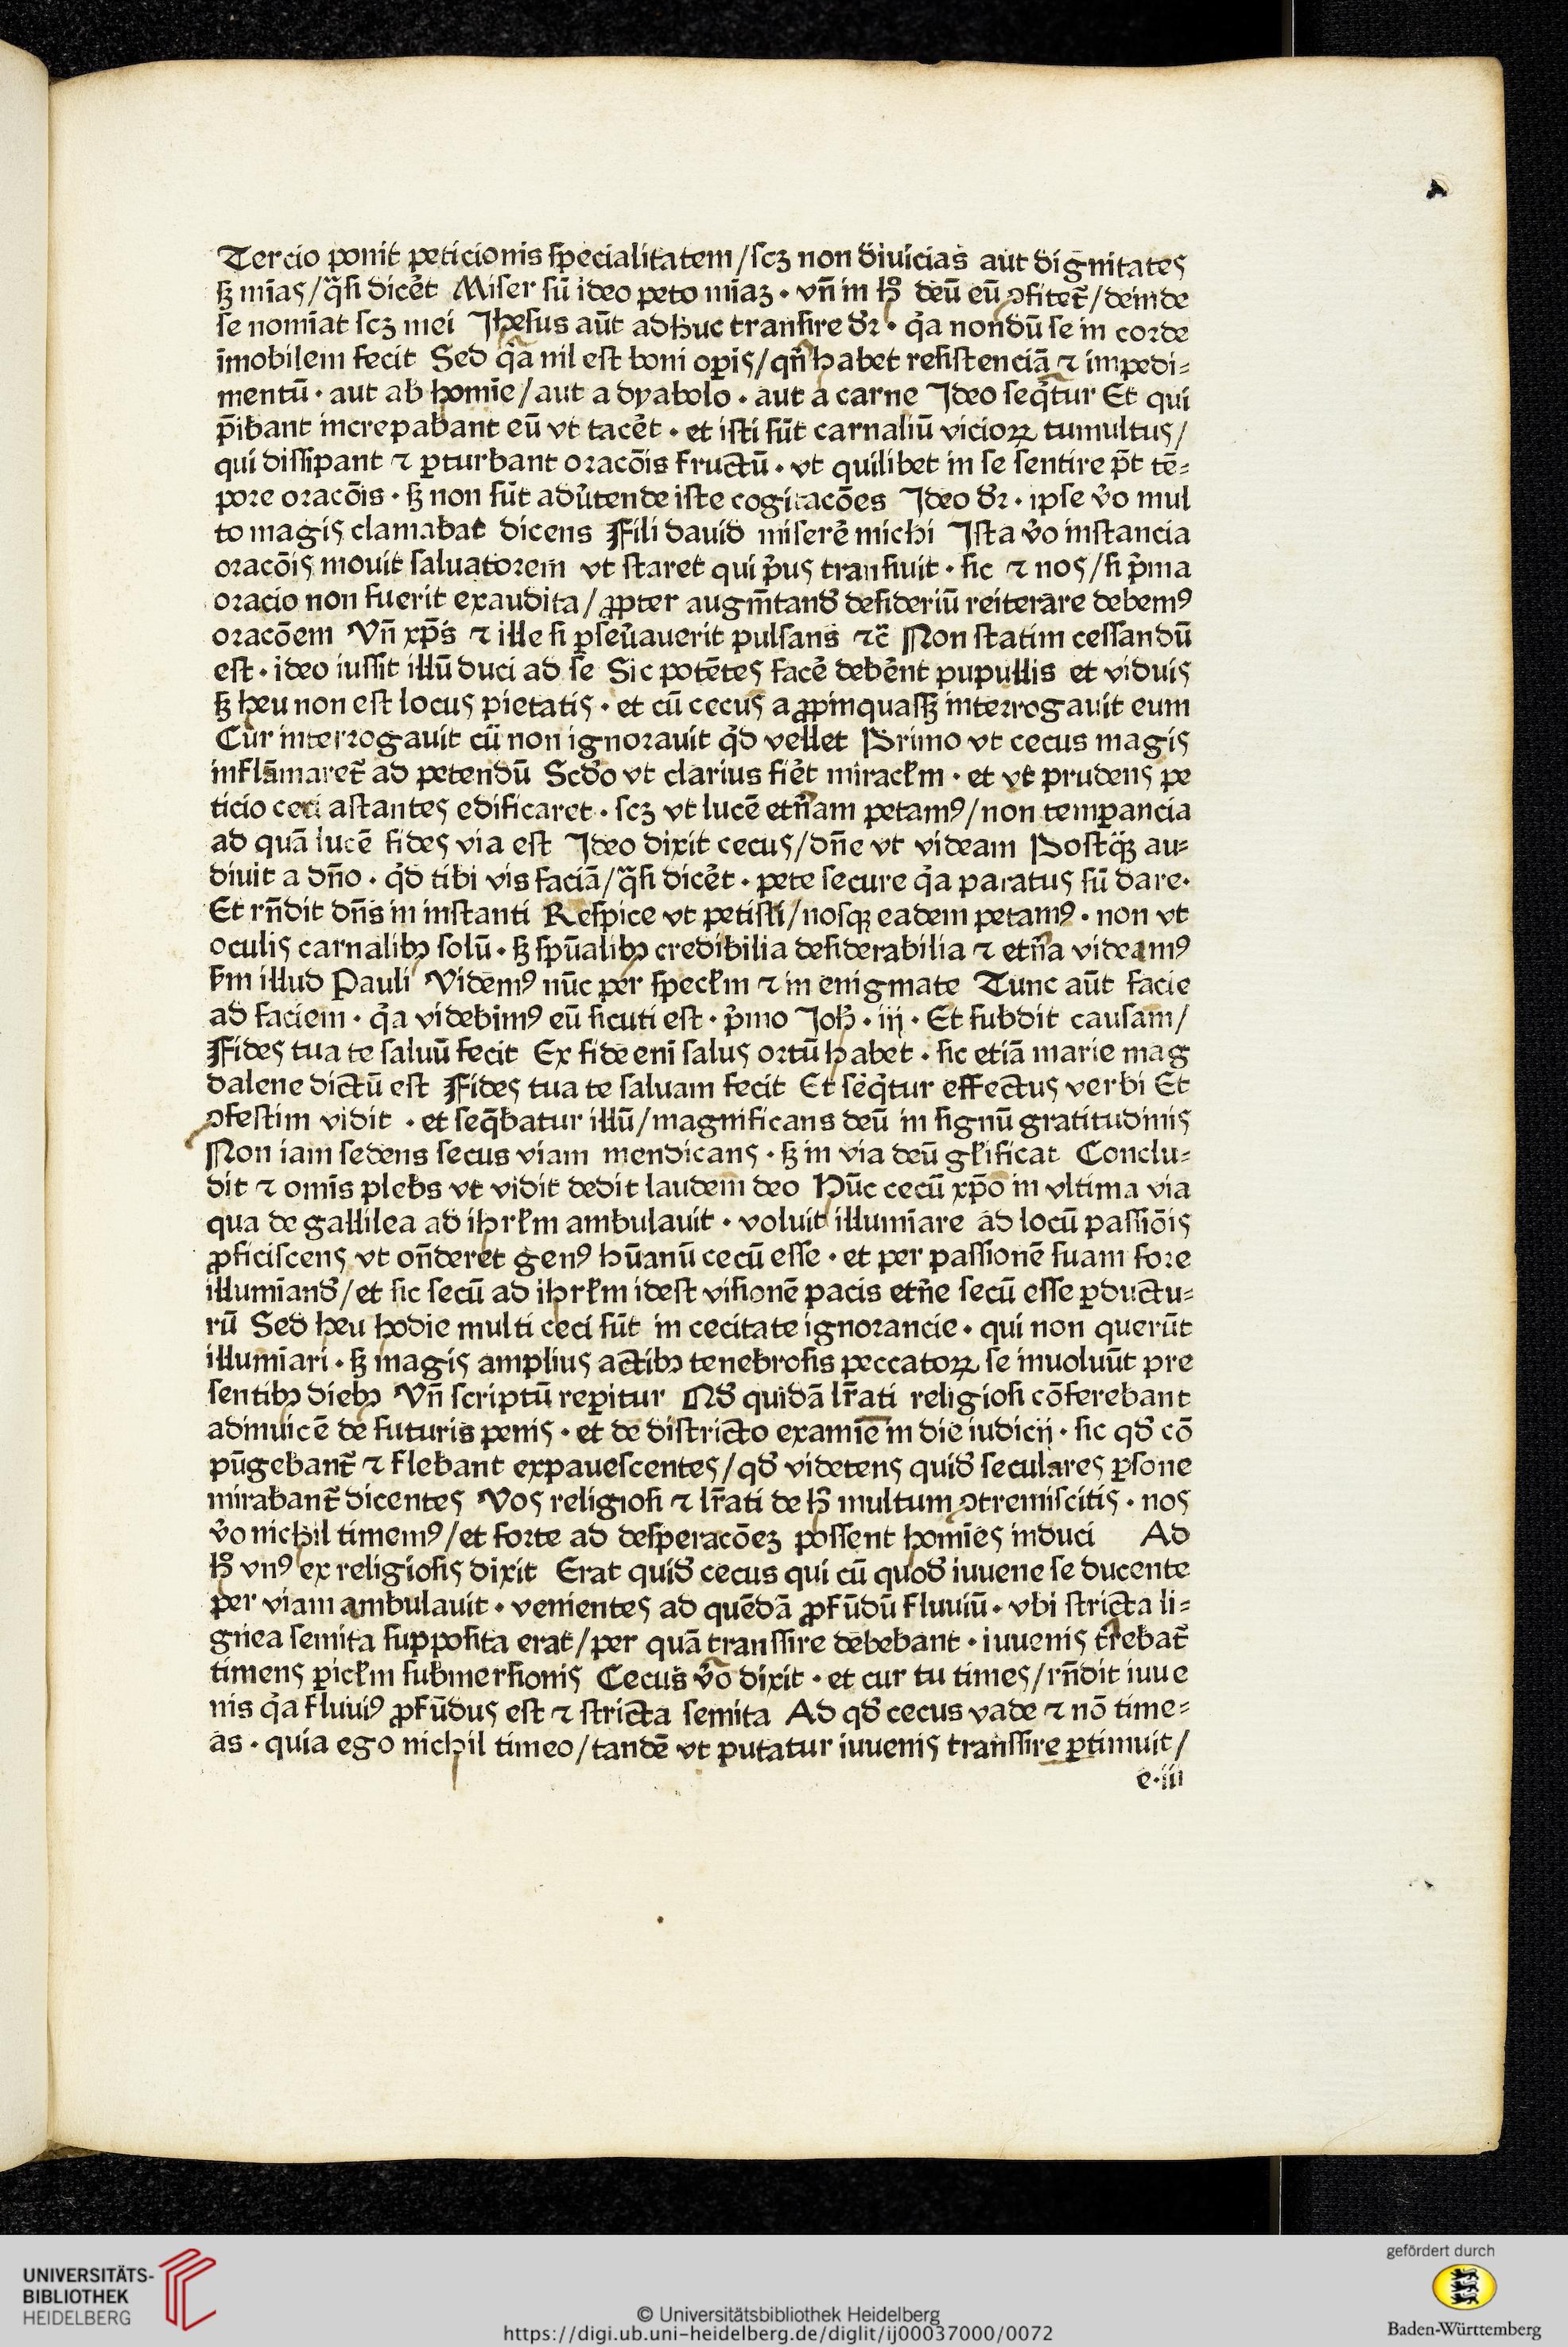 Tercio ponit peticionis ſpecialitatem/ſcꝫ non diuicias aut dignitates
ſꝫ mīas/q̄ſi dicēt Miſer ſū ideo peto mīaꝫ · vn̄ in hͦ deū eū ↄfitet᷑/deinde
ſe nomīat ſcꝫ mei Jheſus aūt adhuc tranſire dr̄ · qͥa nondū ſe in corde
īmobilem fecit Sed qͥa nil eſt boni oꝑis/qn̄ habet reſiſtenciā ⁊ impedi⸗
mentū · aut ab homīe/aut a dyabolo · aut a carne Jdeo ſeqͥtur Et qui
p̄ibant increpabant eū vt tacēt · et iſti ſūt carnaliū vicioꝝ tumultus/
qui diſſipant ⁊ ꝑturbant oracōis fructū · vt quilibet in ſe ſentire pōt tē⸗
pore oracōis · ſꝫ non ſūt adūtende iſte cogitacōes Jdeo dr̄ · ipſe v̓o mul
to magis clamabat dicens Fili dauid miſerē michi Jſta v̓o inſtancia
oracōis mouit ſaluatorem vt ſtaret qui pͥus tranſiuit · ſic ⁊ nos/ſi pͥma
oracio non fuerit exaudita/ꝓpter augm̄tand̄ deſideriū reiterare debemꝰ
oracōem Vn̄ xp̄s ⁊ ille ſi ꝑſeu̓auerit pulſans ⁊c̄ Non ſtatim ceſſandū
eſt · ideo iuſſit illū duci ad ſe Sic potētes facē debēnt pupullis et viduis
ſꝫ heu non eſt locus pietatis · et cū cecus aꝓpinquaſſꝫ interrogauit eum
Cur interrogauit cū non ignorauit qͥd vellet Primo vt cecus magis
inflāmaret᷑ ad petendū Scd̄o vt clarius fiēt miraclm̄ · et vt prudens pe
ticio ceci aſtantes edificaret · ſcꝫ vt lucē etn̄am petamꝰ/non temꝑancia
ad quā lucē fides via eſt Jdeo dixit cecus/dn̄e vt videam Poſtqꝫ au⸗
diuit a dn̄o · qͥd tibi vis faciā/q̄ſi dicēt · pete ſecure qͥa paratus ſū dare·
Et rn̄dit dn̄s in inſtanti Reſpice vt petiſti/noſqꝫ eadem petamꝰ · non vt
oculis carnalibꝫ ſolū · ſꝫ ſpūalibꝫ credibilia deſiderabilia ⁊ etn̄a videamꝰ
ſm̄ illud Pauli Videmꝰ nūc per ſpeclm̄ ⁊ in enigmate Tunc aūt facie
ad faciem · qͥa videbimꝰ eū ſicuti eſt · pͥmo Joh̄ · iij · Et ſubdit cauſam/
Fides tua te ſaluū fecit Ex fide enī ſalus ortū habet · ſic etiā marie mag
dalene dictū eſt Fides tua te ſaluam fecit Et ſeqͥtur effectus verbi Et
ↄfeſtim vidit · et ſeq̄batur illū/magnificans deū in ſignū gratitudinis
Non iam ſedens ſecus viam mendicans · ſꝫ in via deū gl̄ificat Conclu⸗
dit ⁊ omīs plebs vt vidit dedit laudem deo Hūc cecū xp̄o in vltima via
qua de gallilea ad ihrl̄m ambulauit · voluit illumīare ad locū paſſiōis
ꝓficiſcens vt on̄deret genꝰ hūanū cecū eſſe · et per paſſionē ſuam fore
illumīand̄/et ſic ſecū ad ihrl̄m ideſt viſionē pacis etn̄e ſecū eſſe ꝑductu⸗
rū Sed heu hodie multi ceci ſūt in cecitate ignorancie · qui non querūt
illumīari · ſꝫ magis amplius actibꝫ tenebroſis peccatoꝝ ſe inuoluūt pre
ſentibꝫ diebꝫ Vn̄ ſcriptū reꝑitur Qd̄ quidā lr̄ati religioſi cōferebant
adinuicē de futuris penis · et de diſtricto examīe in die iudicij · ſic qd̄ cō
pūgebant᷑ ⁊ flebant expaueſcentes/qd̄ videtens quid̄ ſeculares ꝑſone
mirabant᷑ dicentes Vos religioſi ⁊ lr̄ati de hͦ multum ↄtremiſcitis · nos
v̓o nichil timemꝰ/et forte ad deſperacōeꝫ poſſent homīes induci Ad
hͦ vnꝰ ex religioſis dixit Erat quid̄ cecus qui cū quod̄ iuuene ſe ducente
per viam ambulauit · venientes ad quēdā ꝓfūdū fluuiū · vbi ſtricta li⸗
gnea ſemita ſuppoſita erat/per quā tranſſire debebant · iuuenis tr̄ebat᷑
timens ꝑiclm̄ ſubmerſionis Cecus v̓o dixit · et cur tu times/rn̄dit iuue
nis qͥa fluuiꝰ ꝓfūdus eſt ⁊ ſtricta ſemita Ad qd̄ cecus vade ⁊ nō time⸗
as · quia ego nichil timeo/tandē vt putatur iuuenis tranſſire ꝑtimuit/
e·iii
UNIVERSITÄTS-
BIBLIOTHEK
HEIDELBERG
© Universitätsbibliothek Heidelberg
https://digi.ub.uni-heidelberg.de/diglit/ij00037000/0072
gefördert durch
Baden-Württemberg